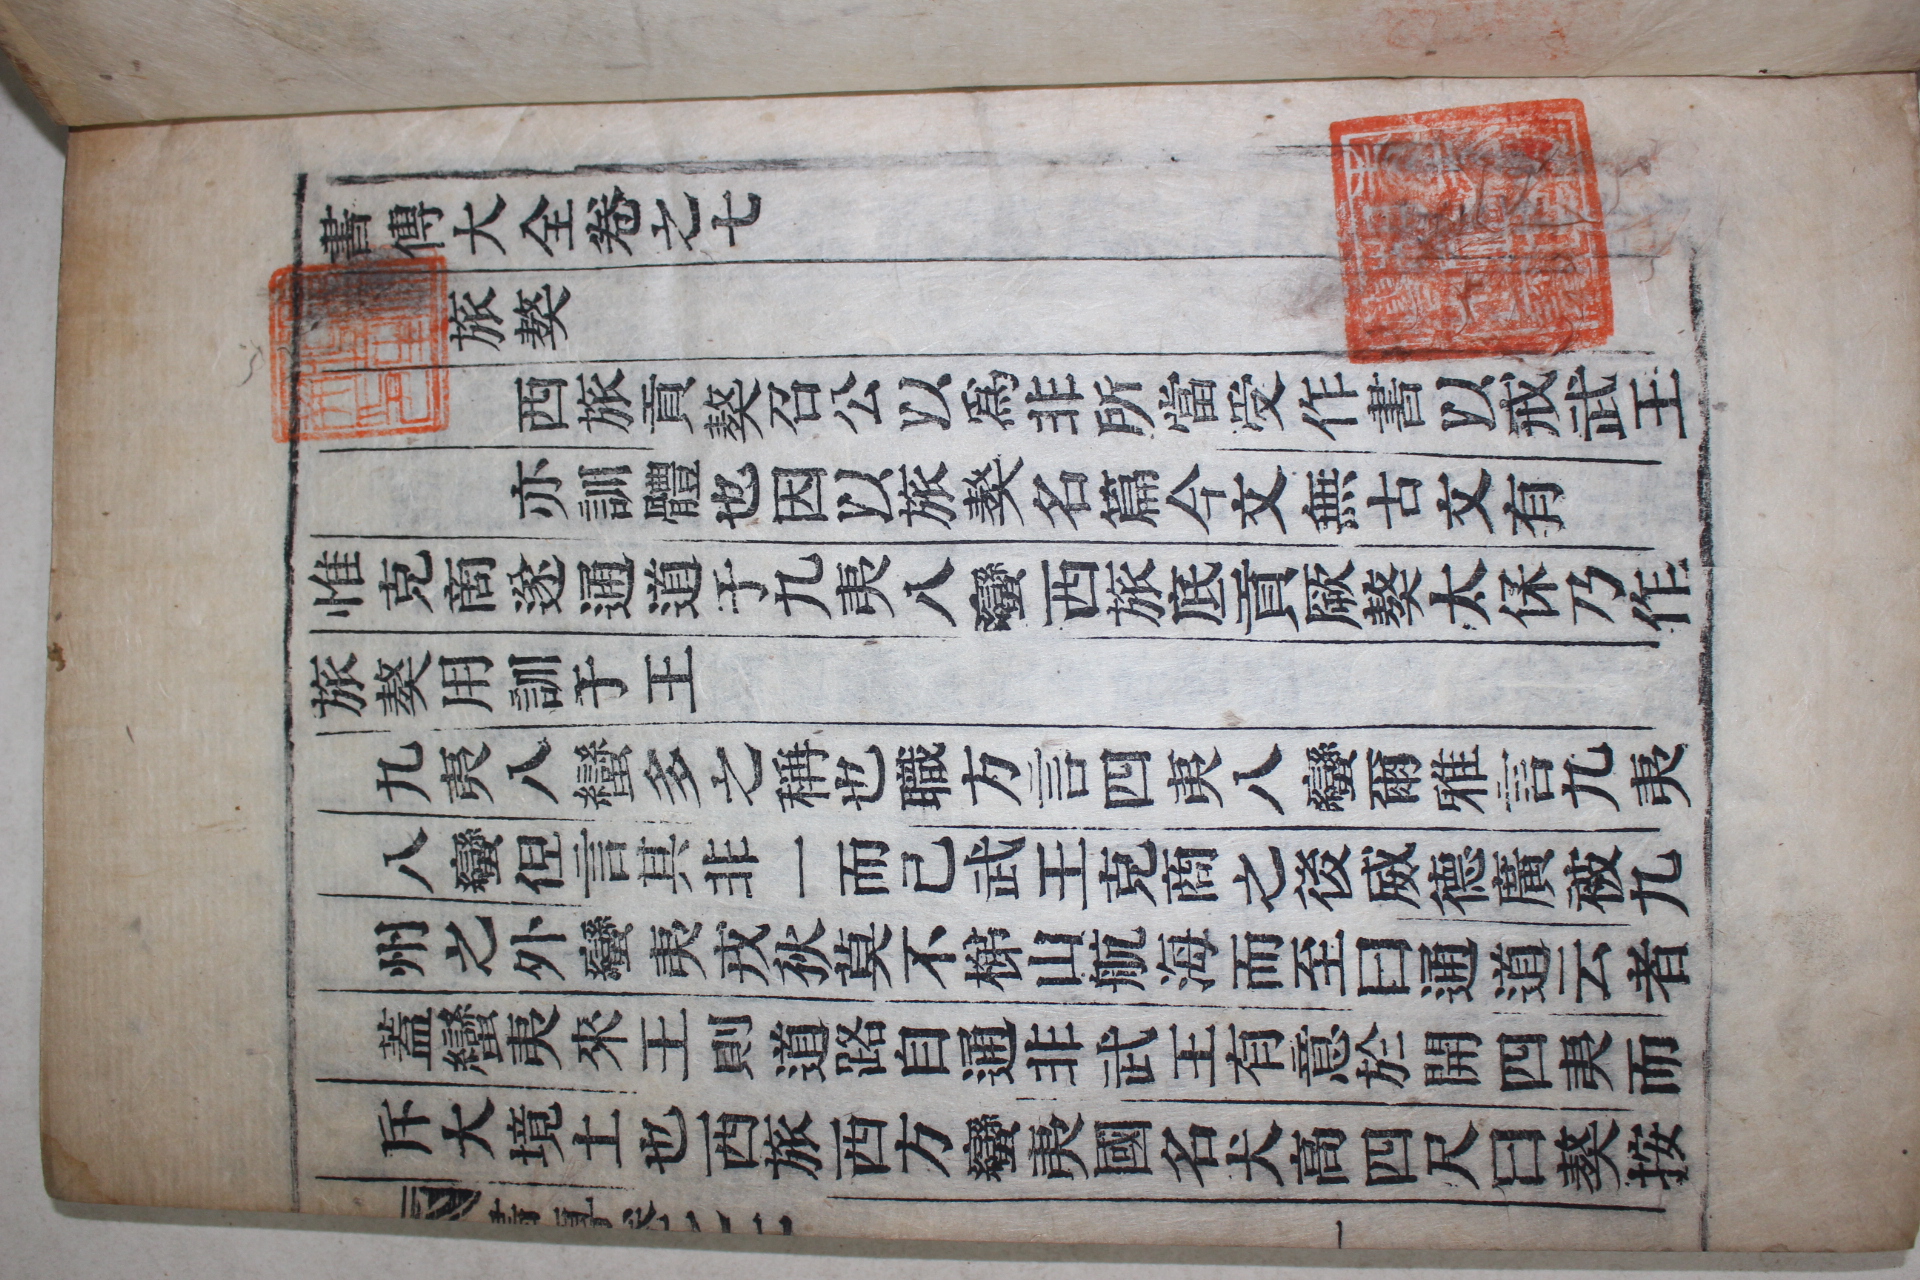 書傳大全卷之七
旅獒
西旅貢獒召公以爲非所當受作書以戒武王
亦訓體也因以旅獒名篇今文無古文有
惟克商遂通道于九夷八蠻西旅底貢厥獒太保乃作
旅獒用訓于王
九夷八蠻多之稱也職方言四夷八蠻爾雅言九夷
八蠻但言其非一而已武王克商之後威德廣被九
州之外蠻夷戎狄莫不梯山航海而至曰通道云者
蓋蠻夷來王則道路自通非武王有意於開四夷而
斥大境土也西旅西方蠻夷國名犬高四尺曰獒按